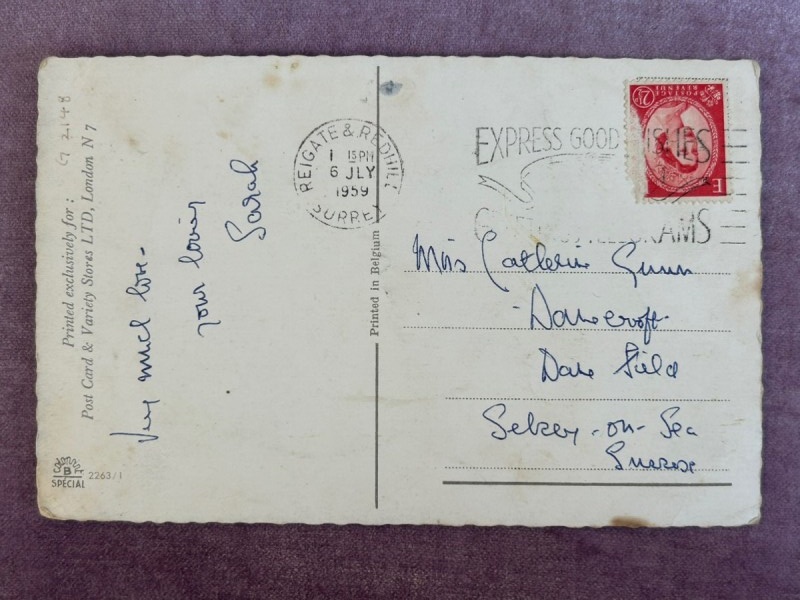 G 2148
Printed exclusively for :
Post Card & Variety Stores LTD, London N 7
Very much love -
your loving
Sarah
B
SPECIAL
2263/1
Printed in Belgium
REIGATE & REDHILL
1 15 PM
6 JLY
1959
SURREY
EXPRESS GOOD WISHES
POSTAGE
REVENUE
2½
E
Miss Catherine Gunn
Danecroft
Dane Field
Selsey-on-Sea
Sussex